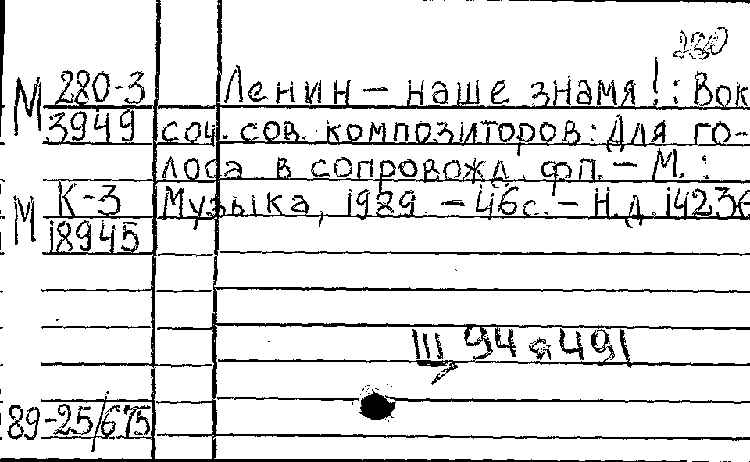 280
М 280-3 Ленин — наше знамя! : Вок
3949 соч. сов. композиторов : Для го-
лоса в сопровожд. фп. — М. :
М К-3 Музыка, 1989. — 46с. — Н.д. 14236
18945
Щ 94 я 491
89-25/675